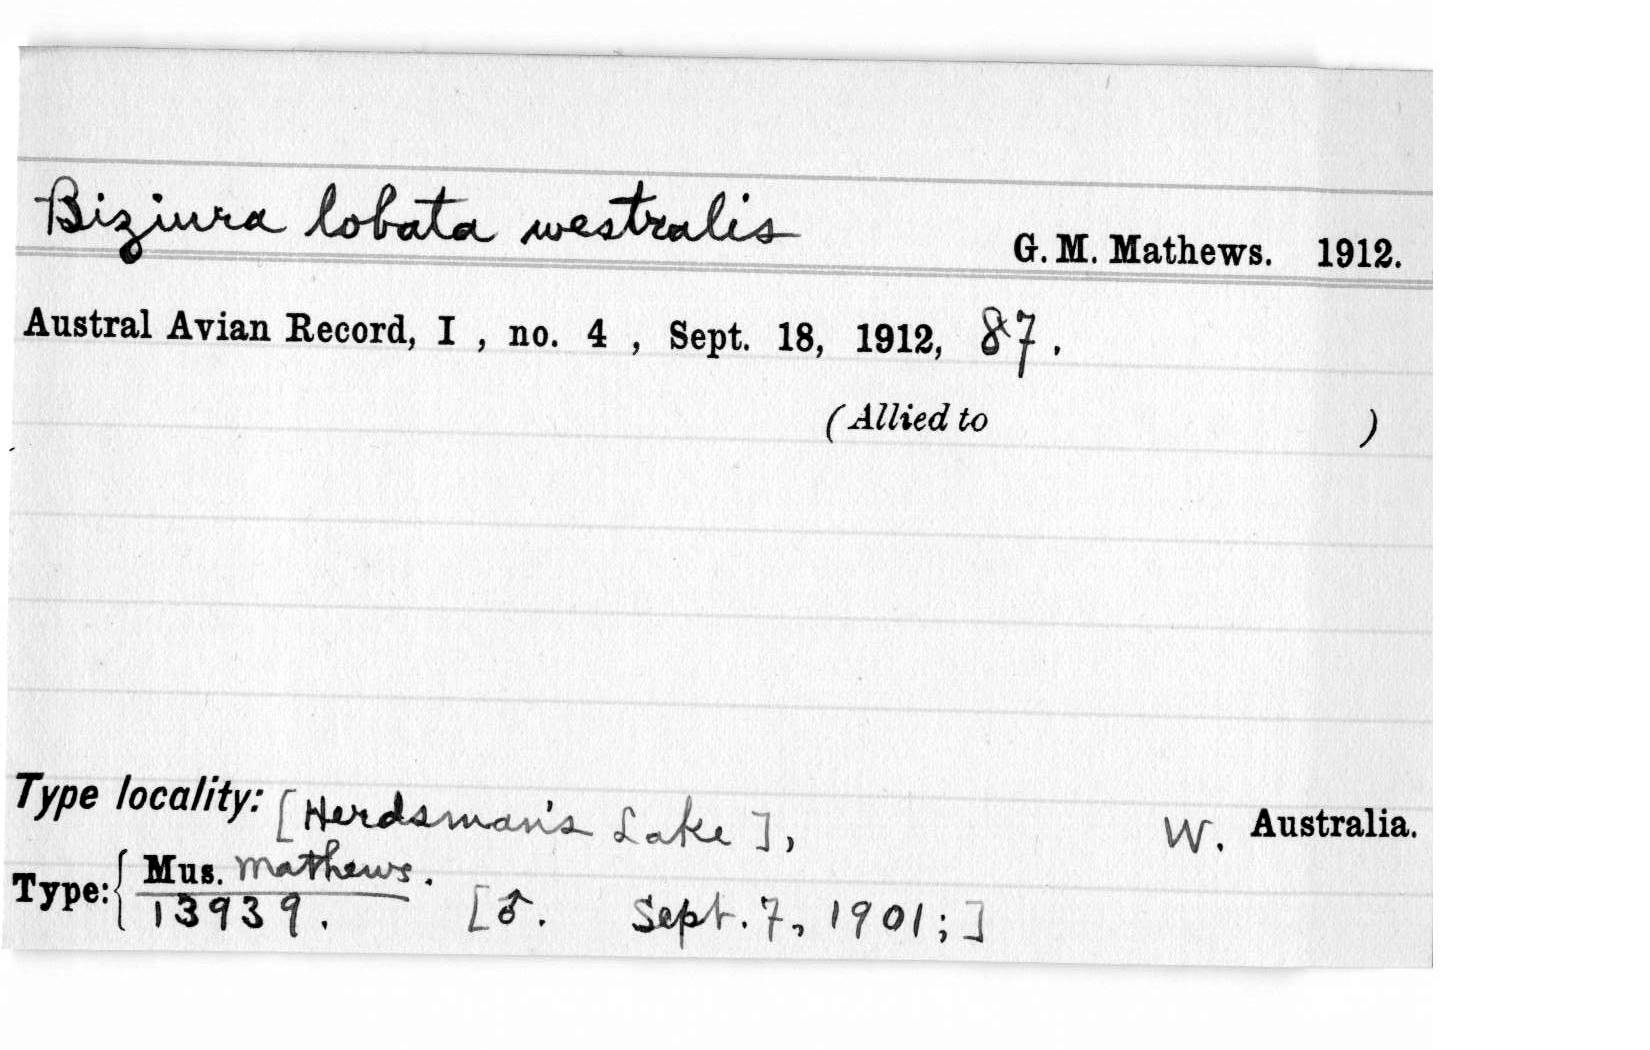 Biziura lobata westralis G. M. Mathews. 1912.
Austral Avian Record, I , no. 4 , Sept. 18, 1912, 87.
(Allied to )
Type locality: [Herdsman's Lake], W. Australia.
Type: { Mus. Mathews.
13939. [♂. Sept. 7, 1901;]